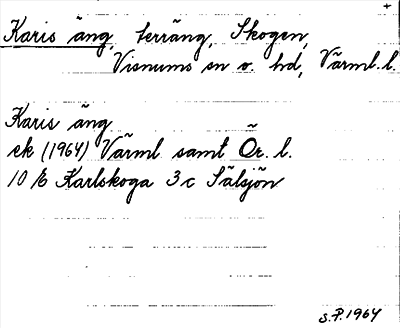 +
Karis äng, terräng, Skogen,
Visnums sn o. hd, Värml. l.
Karis äng
ek (1964) Värml samt Ör. l.
10 E Karlskoga 3 c Sälsjön
S.P. 1964